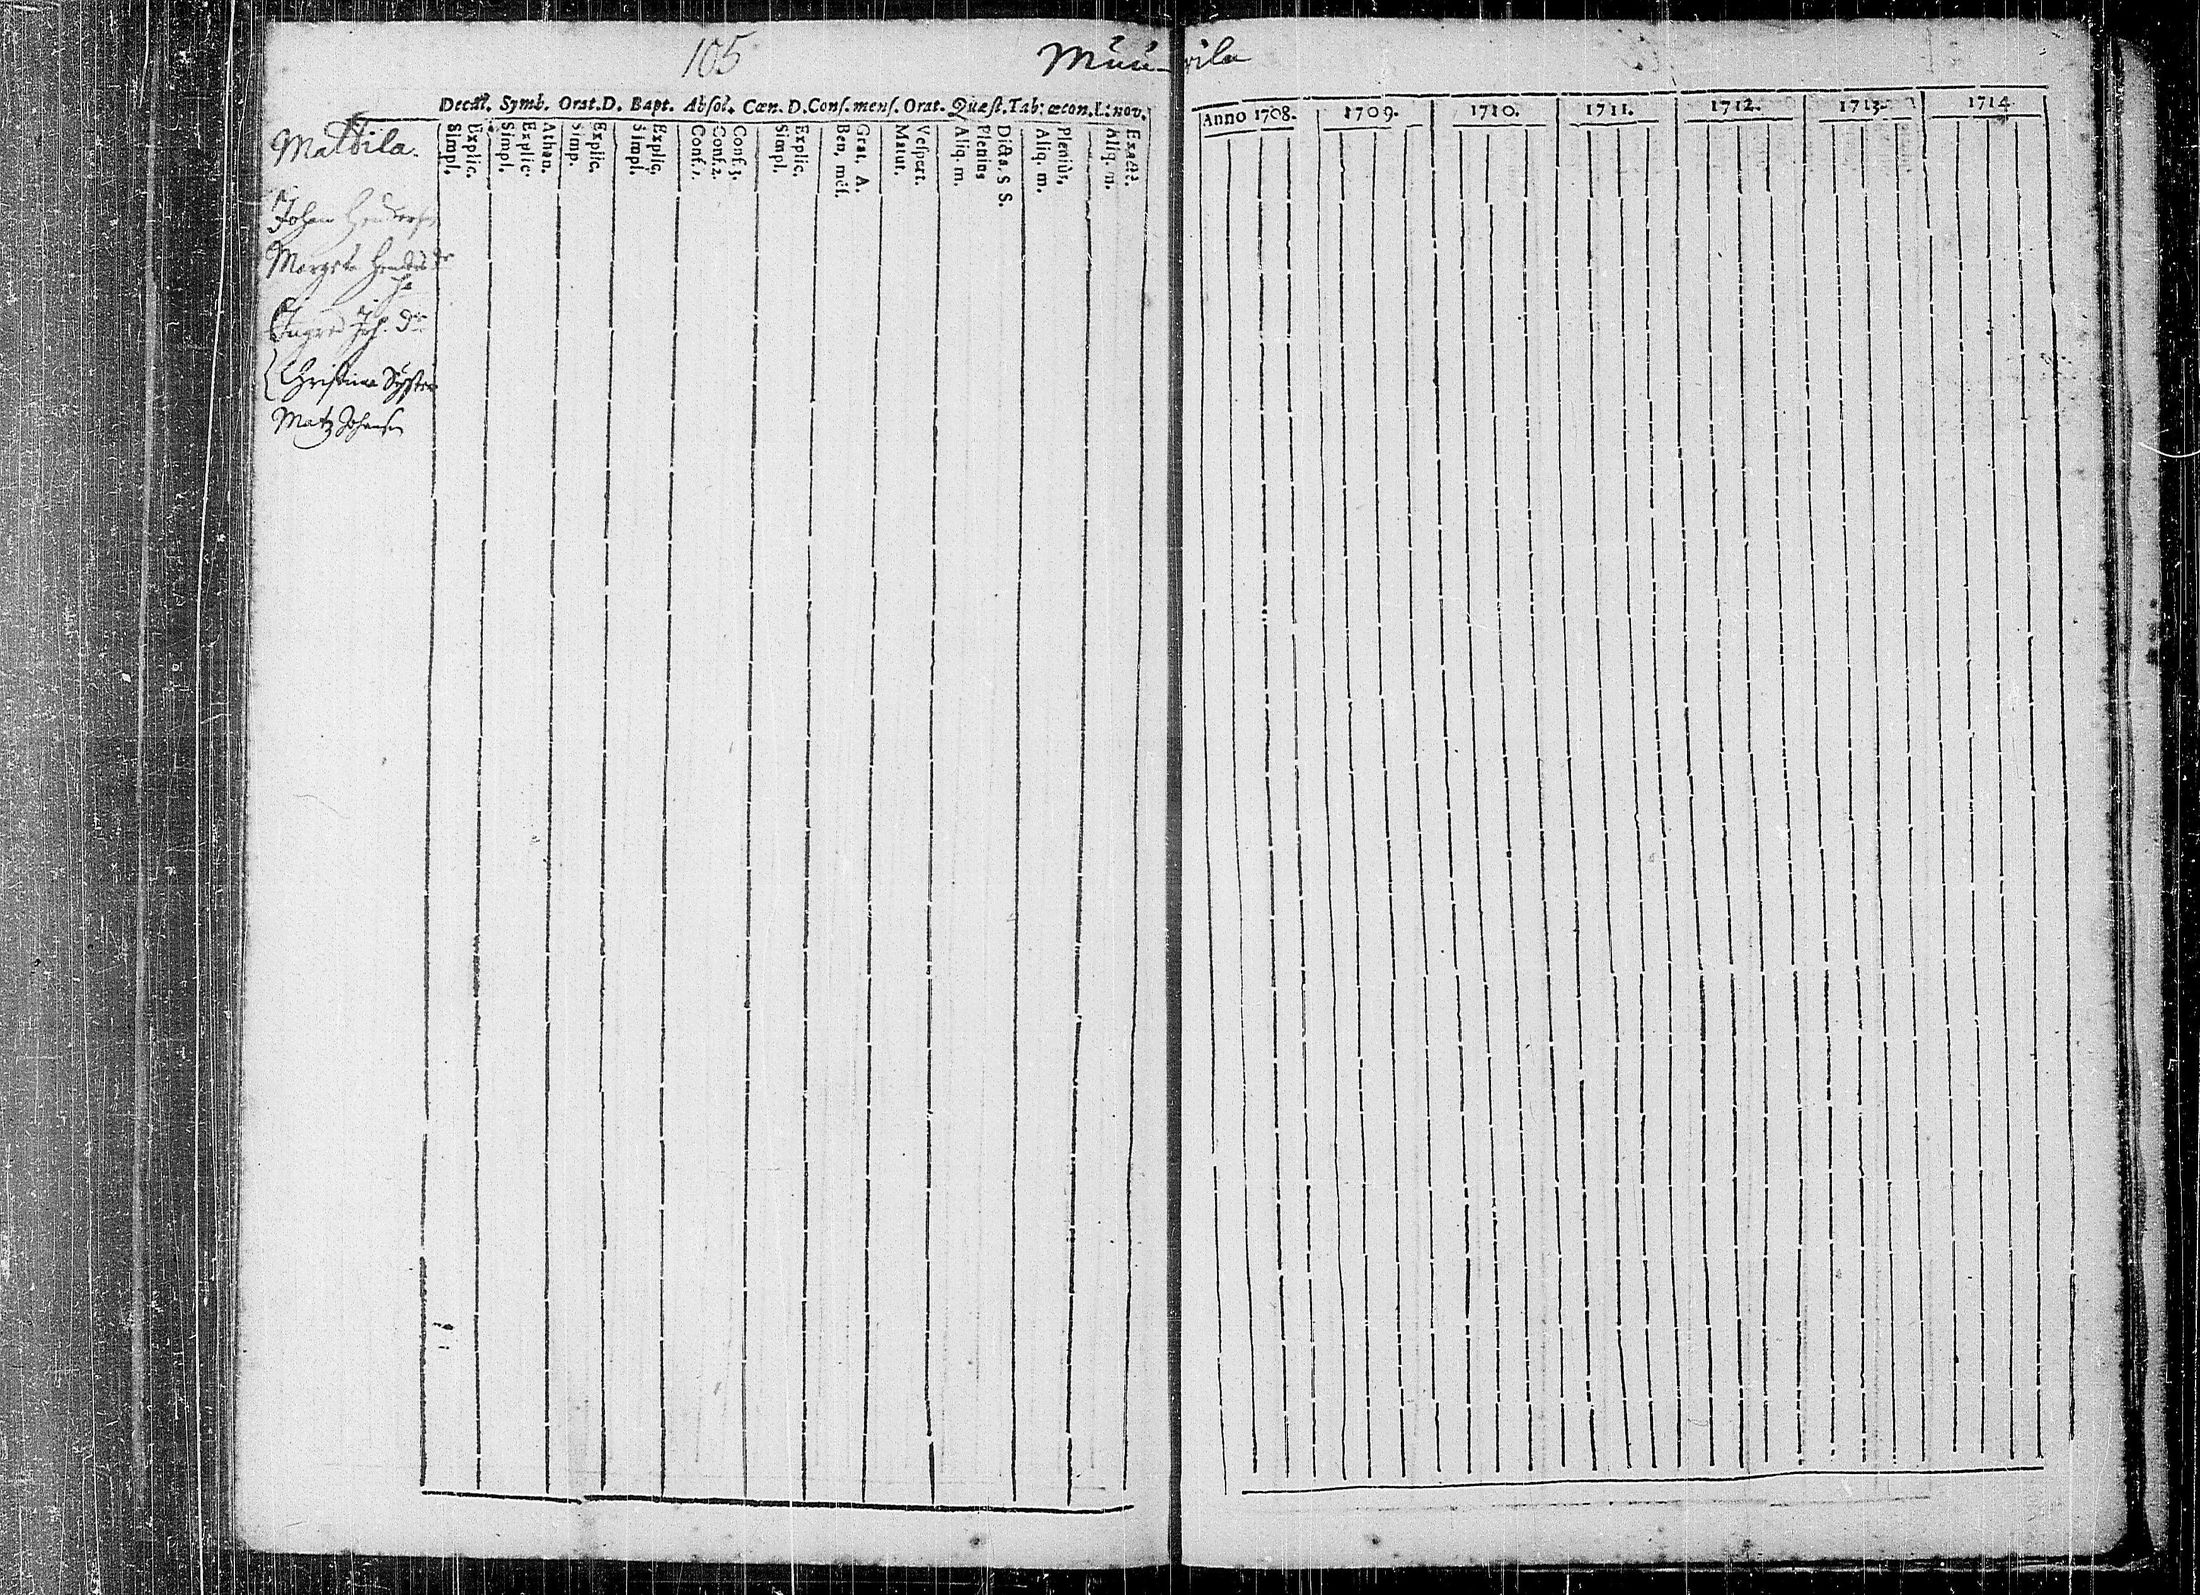 105
Muurila
Decal. Symb. Orat.D. Bapt. Absol. Cœn. D. Conf. mens. Orat. Quæst. Tab: œcon. L: nov.
Simpl. Explic. Simpl. Explic. Athan. Simp. Explic. Simpl. Explic. Conf. 1. Conf. 2. Conf. 3. Simpl. Explic. Ben, mēs. Grat. A. Matut. Vespert. Aliq. m. Plenius Dicta. S S. Aliq. m. Pleniùs, Aliq. m. Exactè.
Anno 1708. 1709. 1710. 1711. 1712. 1713. 1714.
Mattila.
Johan
Margeta
Ingred Joh. dr
Christina Syster
Matz Johansn